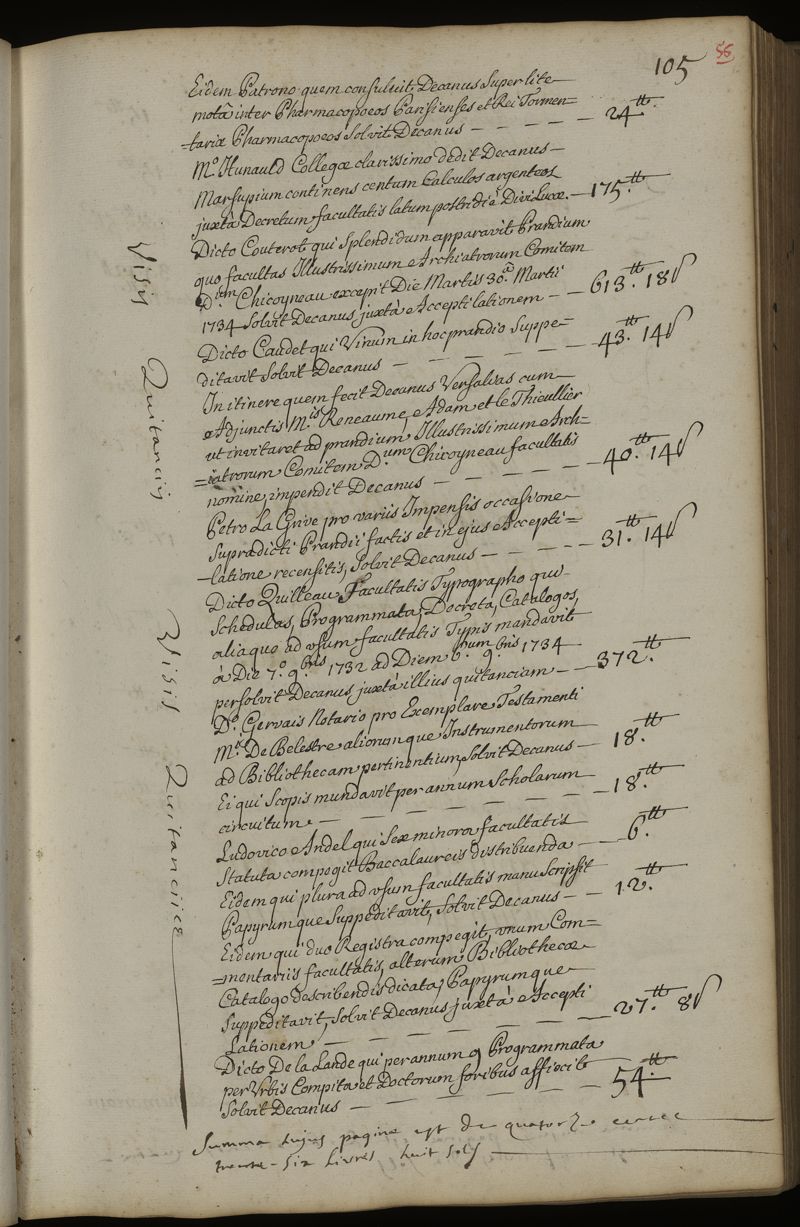 105
58
Eidem Patrono quem consuluit Decanus Super lite
motâ inter Pharmacopoeos Parisienses et Rei Tormen=
=tariæ Pharmacopoeos Solvit Decanus — 24.tt
M.o Hunauld Collegæ clarissimo dedit Decanus —
Marsupium continens centum Calculos argenteos
juxtà Decretum facultatis latum postridiè Divi Lucæ. — 175.tt
Dicto Couterot qui Splendidum apparavit Prandium
quo facultas Illustrissimum Archiatrorum Comitem
D.um Chicoyneau excepit Die Martis 30.a Martii
1734 Solvit Decanus juxtà Acceptilationem — 613.tt 18ſ
Dicto Caudet qui Vinum in hoc prandio Suppe=
ditavit Solvit Decanus — 43.tt 14ſ
In itinere quem fecit Decanus Versalias cum
Adjunctis M.is Reneaume, Adam et le Thieullier
ut invitaret ad prandium Illustrissimum Arch=
=iatrorum Comitem D.um Chicoyneau facultatis
nomine, impendit Decanus — 40.tt 14ſ
Petro La Grive pro variis Impensis occasione
Supradicti Prandii factis et in ejus Accepti=
=latione recensitis, Solvit Decanus — 31.tt 14ſ
Dicto Quilleau Facultatis Typographo qui
Schedulas, Programmata, Decreta, Catalogos,
aliaque ad usum facultatis Typis mandavit
à Die 7.o 9.bris 1732 ad Diem 9.bris 1734
persolvit Decanus juxtà illius quitanciam — 372.tt
D.o Gervais Notario pro Exemplare Testamenti
M.ri De Belestre aliorumque Instrumentorum
ad Bibliothecam pertinentium, Solvit Decanus — 18.tt
Ei qui Scopis mundavit per annum Scholarum
circuitum — 18.tt
Ludovico Andel qui Sex minora facultatis
Statuta compegit Baccalaureis distribuenda — 6.tt
Eidem qui plura ad usum facultatis manu Scripsit
Papyrumque Suppeditavit, Solvit Decanus — 12.tt
Eidem qui duo Registra compegit, unum Com=
=mentariis facultatis, alterum Bibliothecæ
Catalogo describendis dicata, Papyrumque
Suppeditavit, Solvit Decanus juxtà Accepti
Lationem — 27.tt 8ſ
Dicto De la Lande qui per annum Programmata
per Urbis Compita et Doctorum foribus affixit
Solvit Decanus — 54.tt
Summa hujus paginæ est de quatorze cents
trente-six livres huit sols
Visis
Quitanciis
Visis
Quitanciis